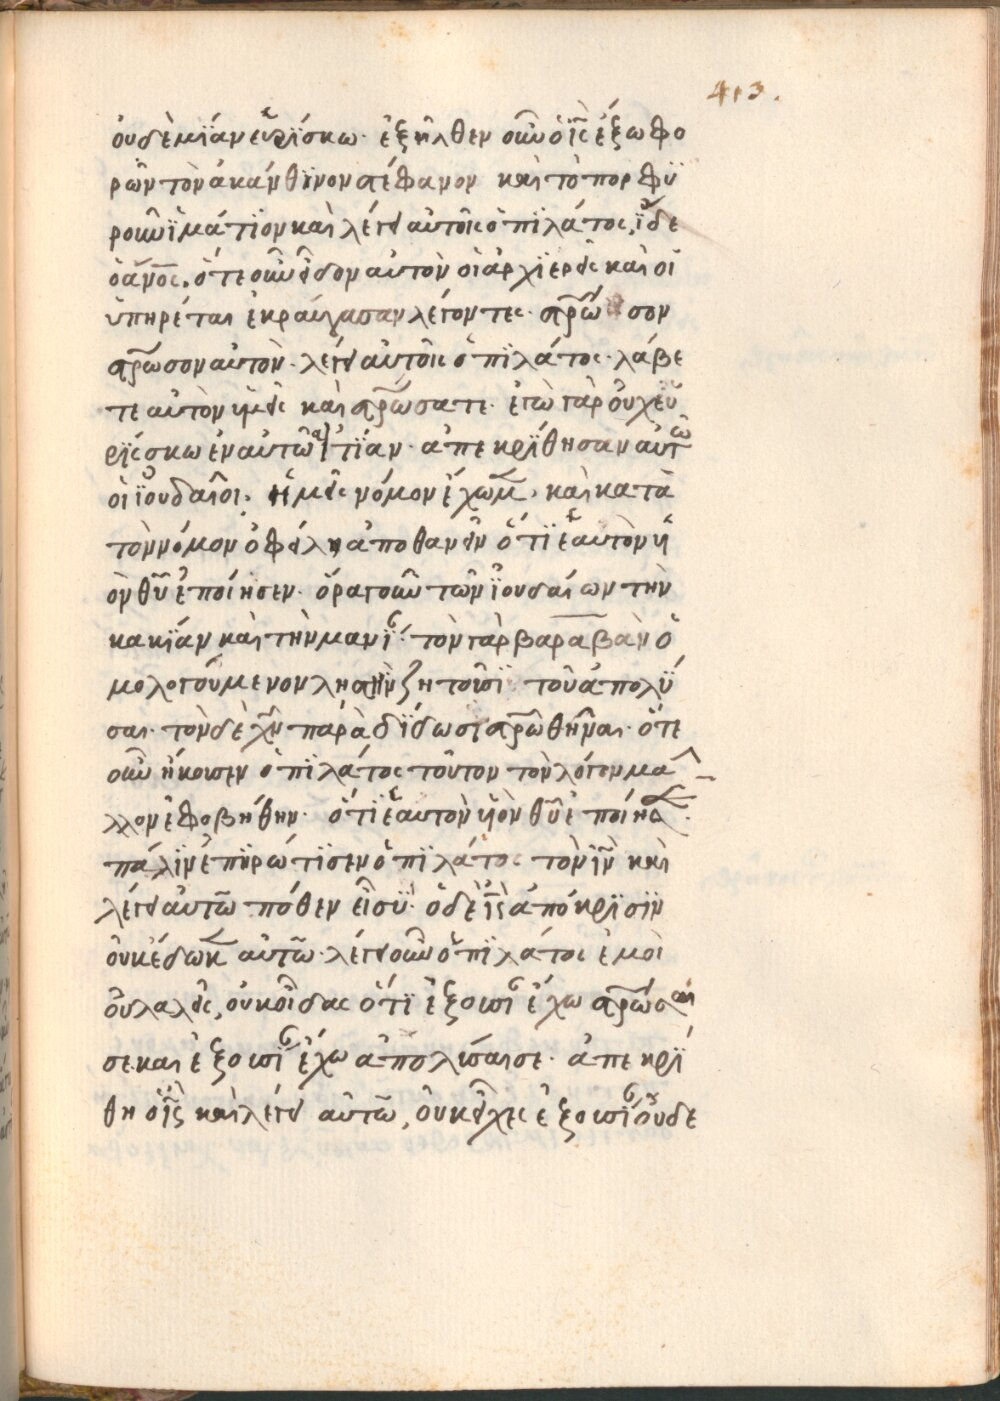 413.
ὀυδὲμΐαν ἑυρΐσκω· ἐξῆλθεν οὖν ὁ ι̅ς̅ ἔξω φο
ρῶν τὸν ἀκάνθϊνον στέφανον καὶ τὸ πορφϋ
ροῦν ἱμάτϊον καὶ λέγει αὐτοῖς ὁ πϊλάτος, ἴδε
ὁ ἄνο̅ς̅. ὅτε οὖν εἶδον αυτὸν οἱ ἀρχϊερεῖς καὶ οἱ
ὑπηρέται ἐκραύγασαν λέγοντες· στ̅ρ̅ωσον
στ̅ρ̅ωσον αὐτόν· λέγει αὐτοῖς ὁ πϊλάτος· λάβε
τε αὐτὸν ὑμεῖς καὶ στ̅ρ̅ώσατε· ἐγὼ γὰρ οὐχ εὑ
ρϊέσκω ἐν αὐτῶ αἰτΐαν· ἀπεκρΐθησαν αὐτῶ
οἱ ἰουδαῖοι· ἡμεῖς νόμον ἔχωμ̅, καὶ κατὰ
τὸν νόμον ὀφείλει ἀποθανεῖν ὅτϊ ἑαυτὸν ὑ
ὸν θ̅υ̅ ἐποίησεν· ὅρα γοῦν τῶν ἰουδαίων τὴν
κακΐαν καὶ τὴν μανΐ· τὸν γὰρ βαραβὰν ὁ
μολογούμενον ληστὴν ζητοῦσϊ τοῦ ἀπολῦ
σαι· τὸν δὲ χ̅ν̅ παρὰδΐδωσϊ στ̅ρ̅ωθῆναι· ὅτε
οὖν ἤκουσεν ὁ πϊλάτος τοῦτον τὸν λόγον μα
λλον ἐφοβήθην· ὅτϊ ἑαυτὸν ὑὸν θ̅υ̅ ἐποίησ·
πάλϊν ἐπηρώτϊσεν ὁ πϊλάτος τὸν ι̅ν̅ καὶ
λέγει αὐτῶ πόθεν εἶ σϋ· ὁ δὲ ι̅ς̅ ἀπόκρϊσϊν
οὐκ ἔδωκ αὐτῶ· λέγει οὖν ὁ πϊλάτος ἐμοὶ
οὐ λαλεῖς, οὐκ οἶδας ὅτϊ ἐξουσϊ ἔχω στ̅ρ̅ῶσαι
σε καὶ ἐξουσϊ ἔχω ἀπολῦσαι σε· ἀπεκρΐ
θη ὁ ι̅ς̅ καὶ λέγει αὐτῶ, οὐκ εἶχες ἐξουσϊ οὐδε